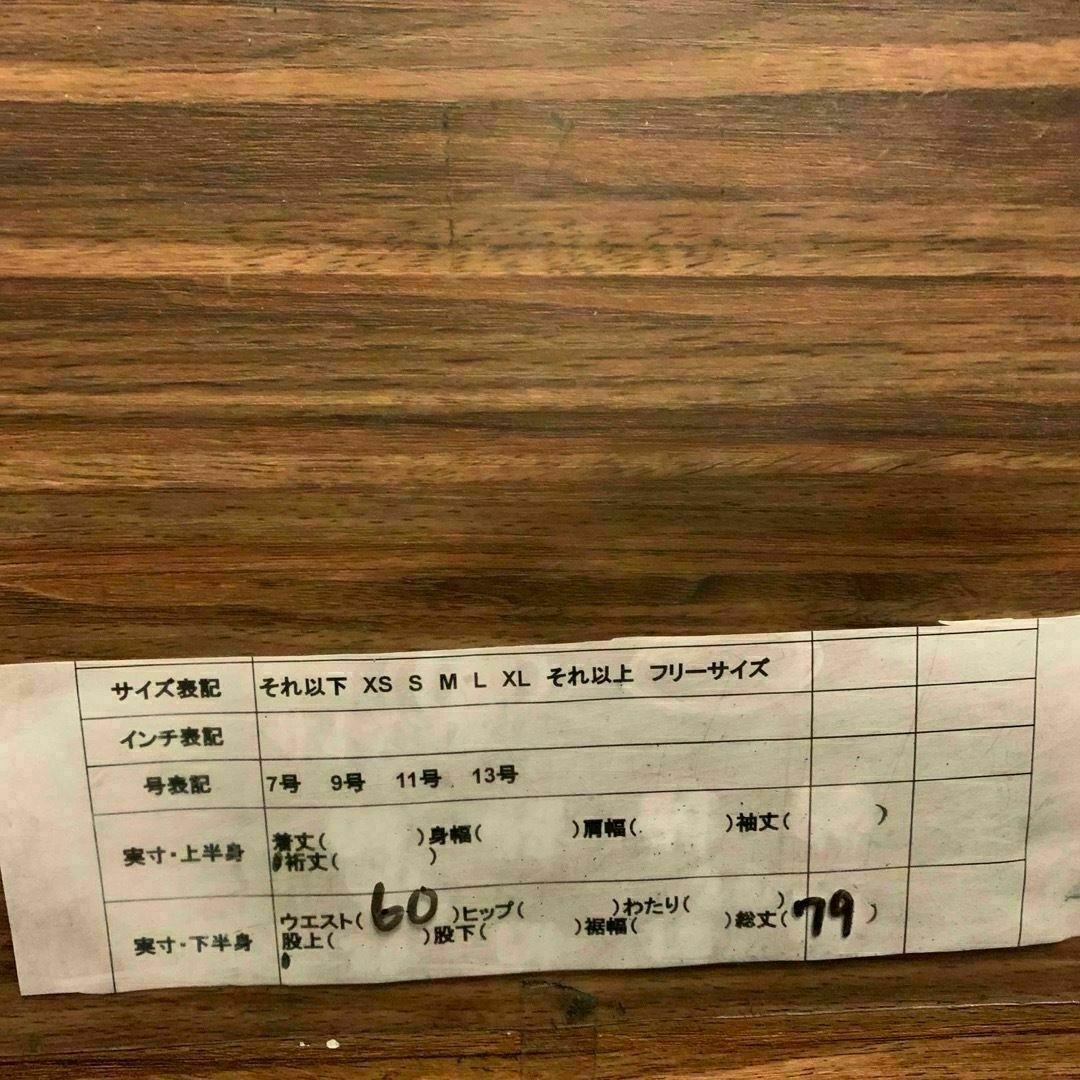 サイズ表記 それ以下 XS S M L XL それ以上 フリーサイズ
インチ表記
号表記 7号 9号 11号 13号
実寸・上半身 着丈( )身幅( )肩幅( )袖丈( )
裄丈( )
実寸・下半身 ウエスト(60)ヒップ( )わたり( )
股上( )股下( )裾幅( )総丈(79)